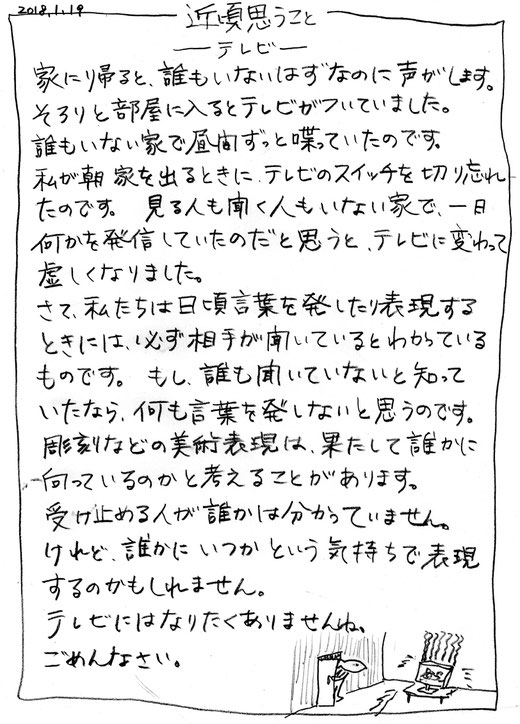 2018.1.19
近頃思うこと
―テレビ―
家に帰ると、誰もいないはずなのに声がします。
そろりと部屋に入るとテレビがついていました。
誰もいない家で昼間ずっと喋っていたのです。
私が朝 家を出るときに、テレビのスイッチを切り忘れ
たのです。 見る人も聞く人もいない家で、一日
何かを発信していたのだと思うと、テレビに変わって
虚しくなりました。
さて、私たちは日頃言葉を発したり表現する
ときには、必ず相手が聞いているとわかっている
ものです。 もし、誰も聞いていないと知って
いたなら、何も言葉を発しないと思うのです。
彫刻などの美術表現は、果たして誰かに
向っているのかと考えることがあります。
受け止める人が誰かは分かっていません。
けれど、誰かに いつか という気持ちで表現
するのかもしれません。
テレビにはなりたくありませんね。
ごめんなさい。